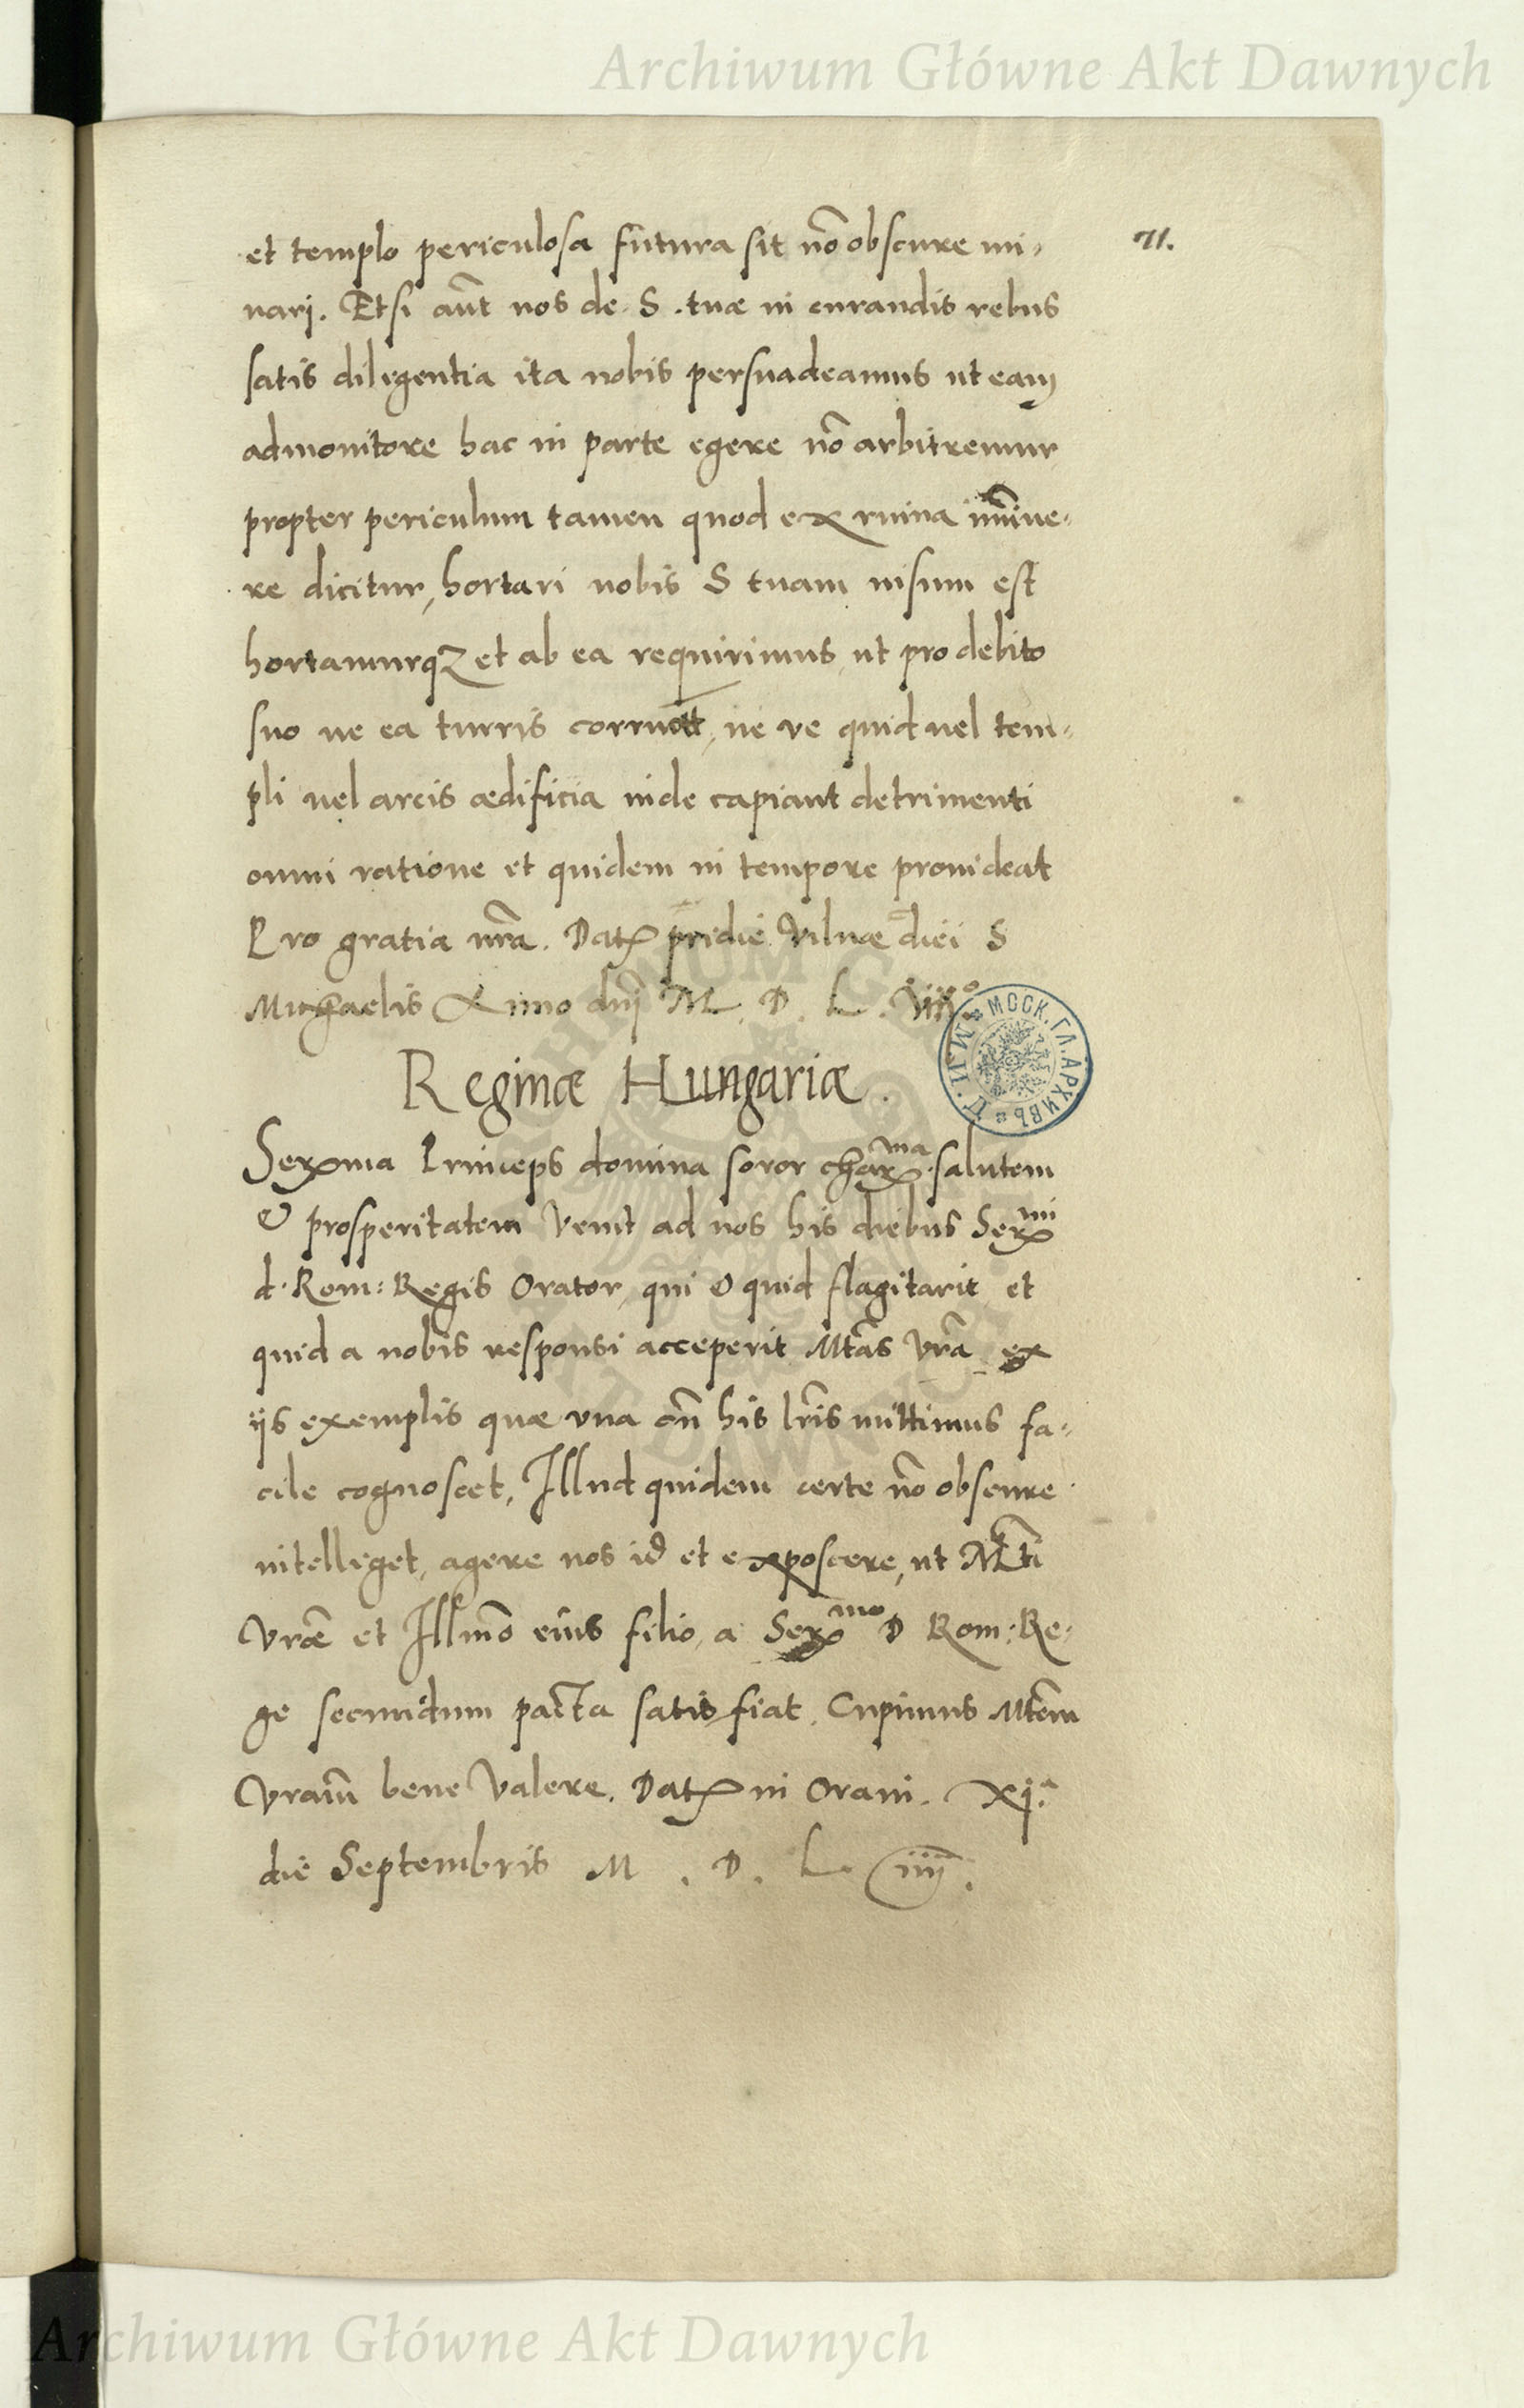 Archiwum Główne Akt Dawnych
71.
et templo periculosa futura sit nō obscure mi-
nari. Etsi aūt nos de S. tuæ in curandis rebus
satis diligentia ita nobis persuadeamus ut eam
admonitore hac in parte egere nō arbitremur
propter periculum tamen quod ex ruina im̄ine-
re dicitur, hortari nobis S tuam uisum est
hortamurqz et ab ea requirimus, ut pro debito
suo ne ea turris corruat, ne ve quid uel tem-
pli uel arcis ædificia inde capiant detrimenti
omni ratione et quidem in tempore prouideat
Pro gratia nrā. Dat pridie Vilnæ diei S
Michaelis Anno dnj M. D. L.
Reginæ Hungariæ.
Serma Princeps domina soror charma. salutem
& prosperitatem Venit ad nos his diebus Sermi
d. Rom: Regis Orator, qui & quid flagitarit et
quid a nobis responsi acceperit Mtās Vrā ex
ijs exemplis quæ vna cū his lrīs mittimus fa-
cile cognoscet, Illud quidem certe nō obscure
intelleget, agere nos id et exposcere, ut Mtī
Vrǣ et Illmō eius filio, a Sermo D Rom: Re-
ge secundum pacta satis fiat. Cupimus Mtēm
Vram̄ bene Valere. Dat in Orani. xj.a
die Septembris M. D. L iiij.
МОСК. ГЛ. АРХИВЪ
М. И. Д.
Archiwum Główne Akt Dawnych